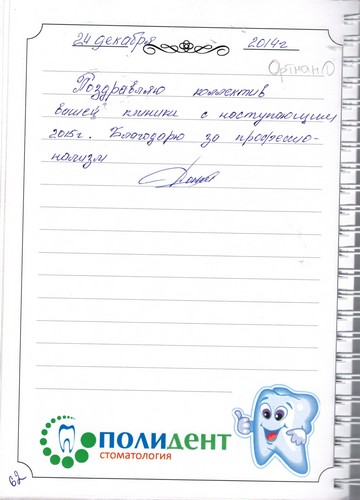 24 декабря 2014 г
Поздравляю коллектив
вашей клиники с наступающим
2015 г. Благодарю за профессио-
нализм
ПОЛИДЕНТ
СТОМАТОЛОГИЯ
62